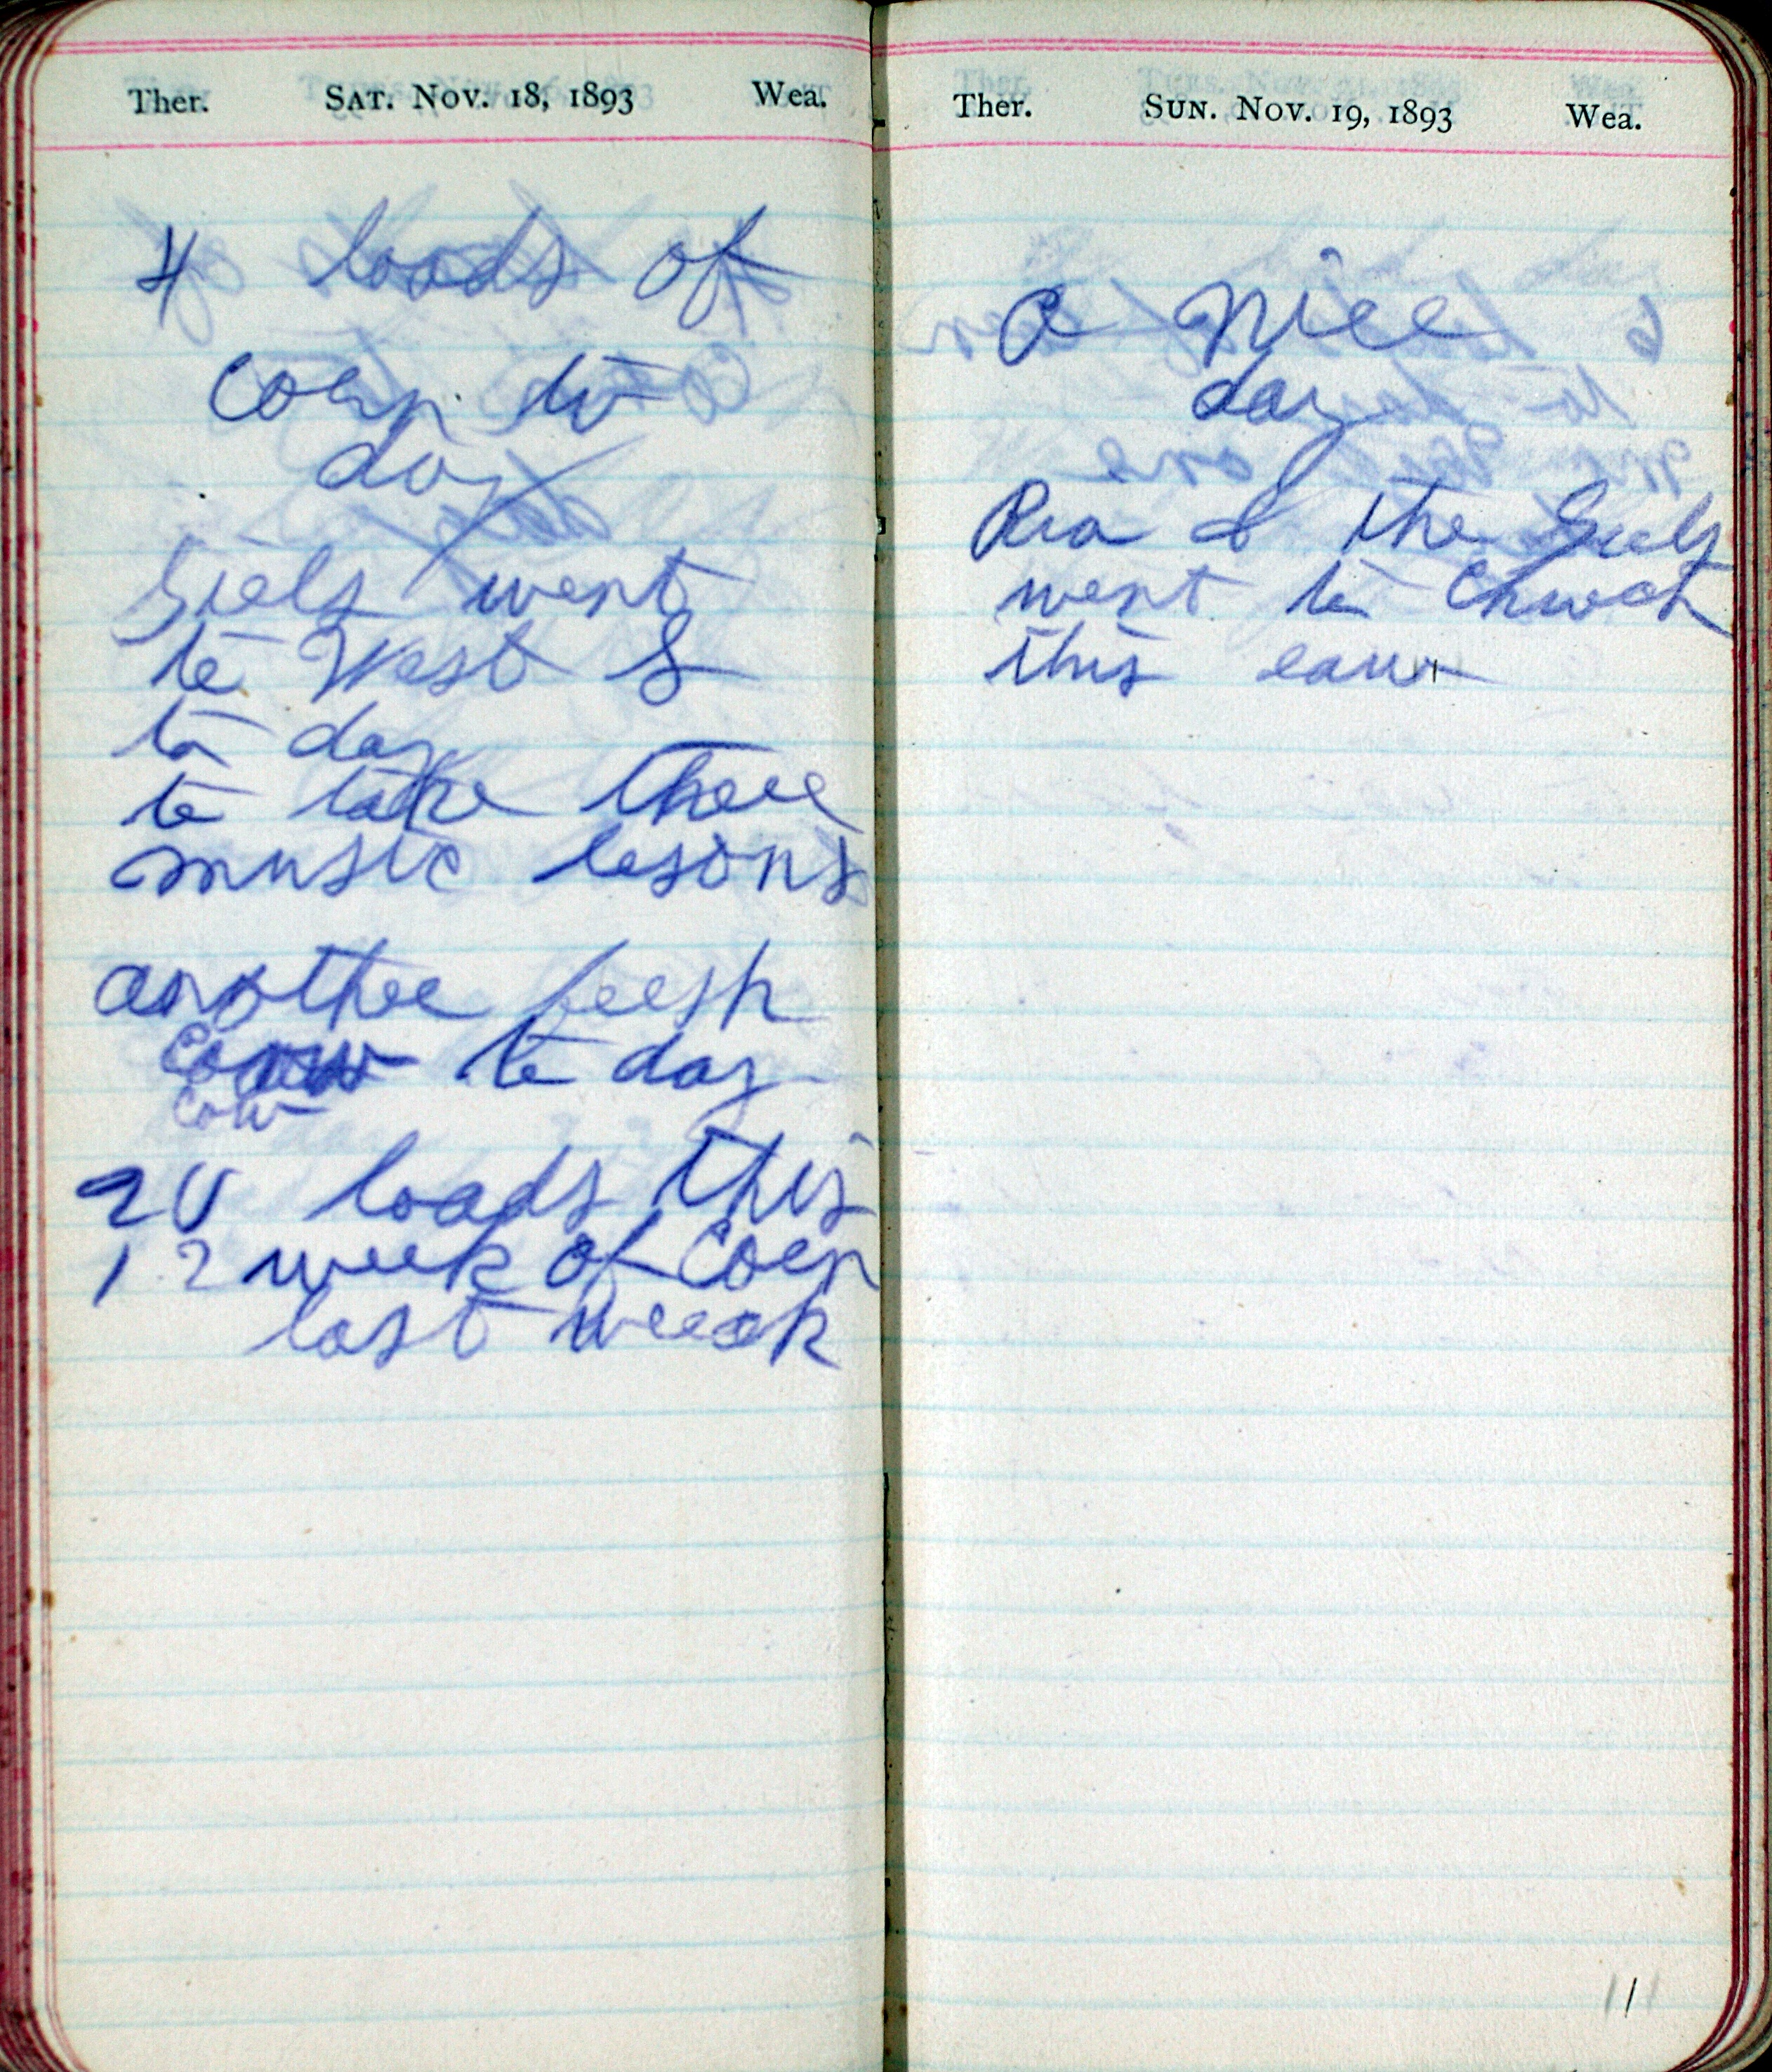 Ther. SAT. NOV. 18, 1893 Wea.
4 loads of
Corn to
day
Girls went
to West S
to day
to take there
music lesons
another fresh
Cow to day
Cow
20 loads this
12 week of Corn
last week
Ther. SUN. NOV. 19, 1893 Wea.
a nice
day
Ria & the Girls
went to Church
this